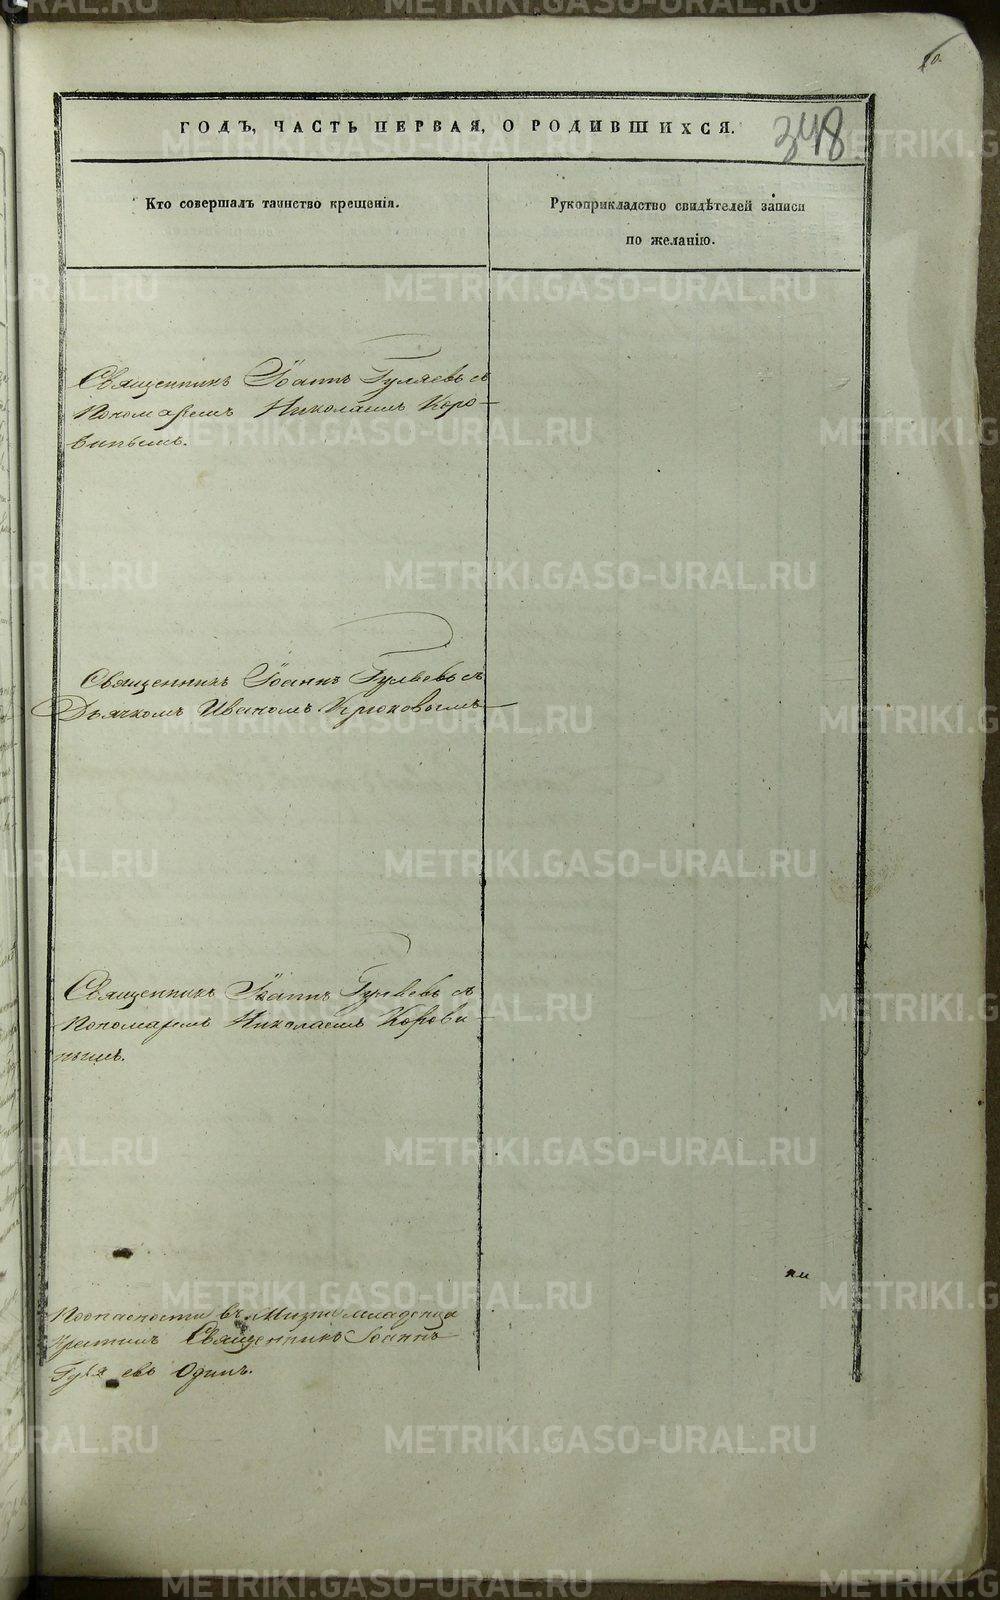 ГОДЪ, ЧАСТЬ ПЕРВАЯ, О РОДИВШИХСЯ.
348
Кто совершалъ таинство крещенія.
Рукоприкладство свидѣтелей записи
по желанію.
Священникъ Іоаннъ Гуляевъ съ
Пономаремъ Николаемъ Коро
винымъ.
Священникъ Іоаннъ Гуляевъ съ
Дьячкомъ Иваномъ Крюковымъ
Священникъ Іоаннъ Гуляевъ съ
Пономаремъ Николаемъ Корови
нымъ.
Поопасности въ жизни младенца
крестилъ Священникъ Іоаннъ
Гуляевъ Одинъ.
METRIKI.GASO-URAL.RU